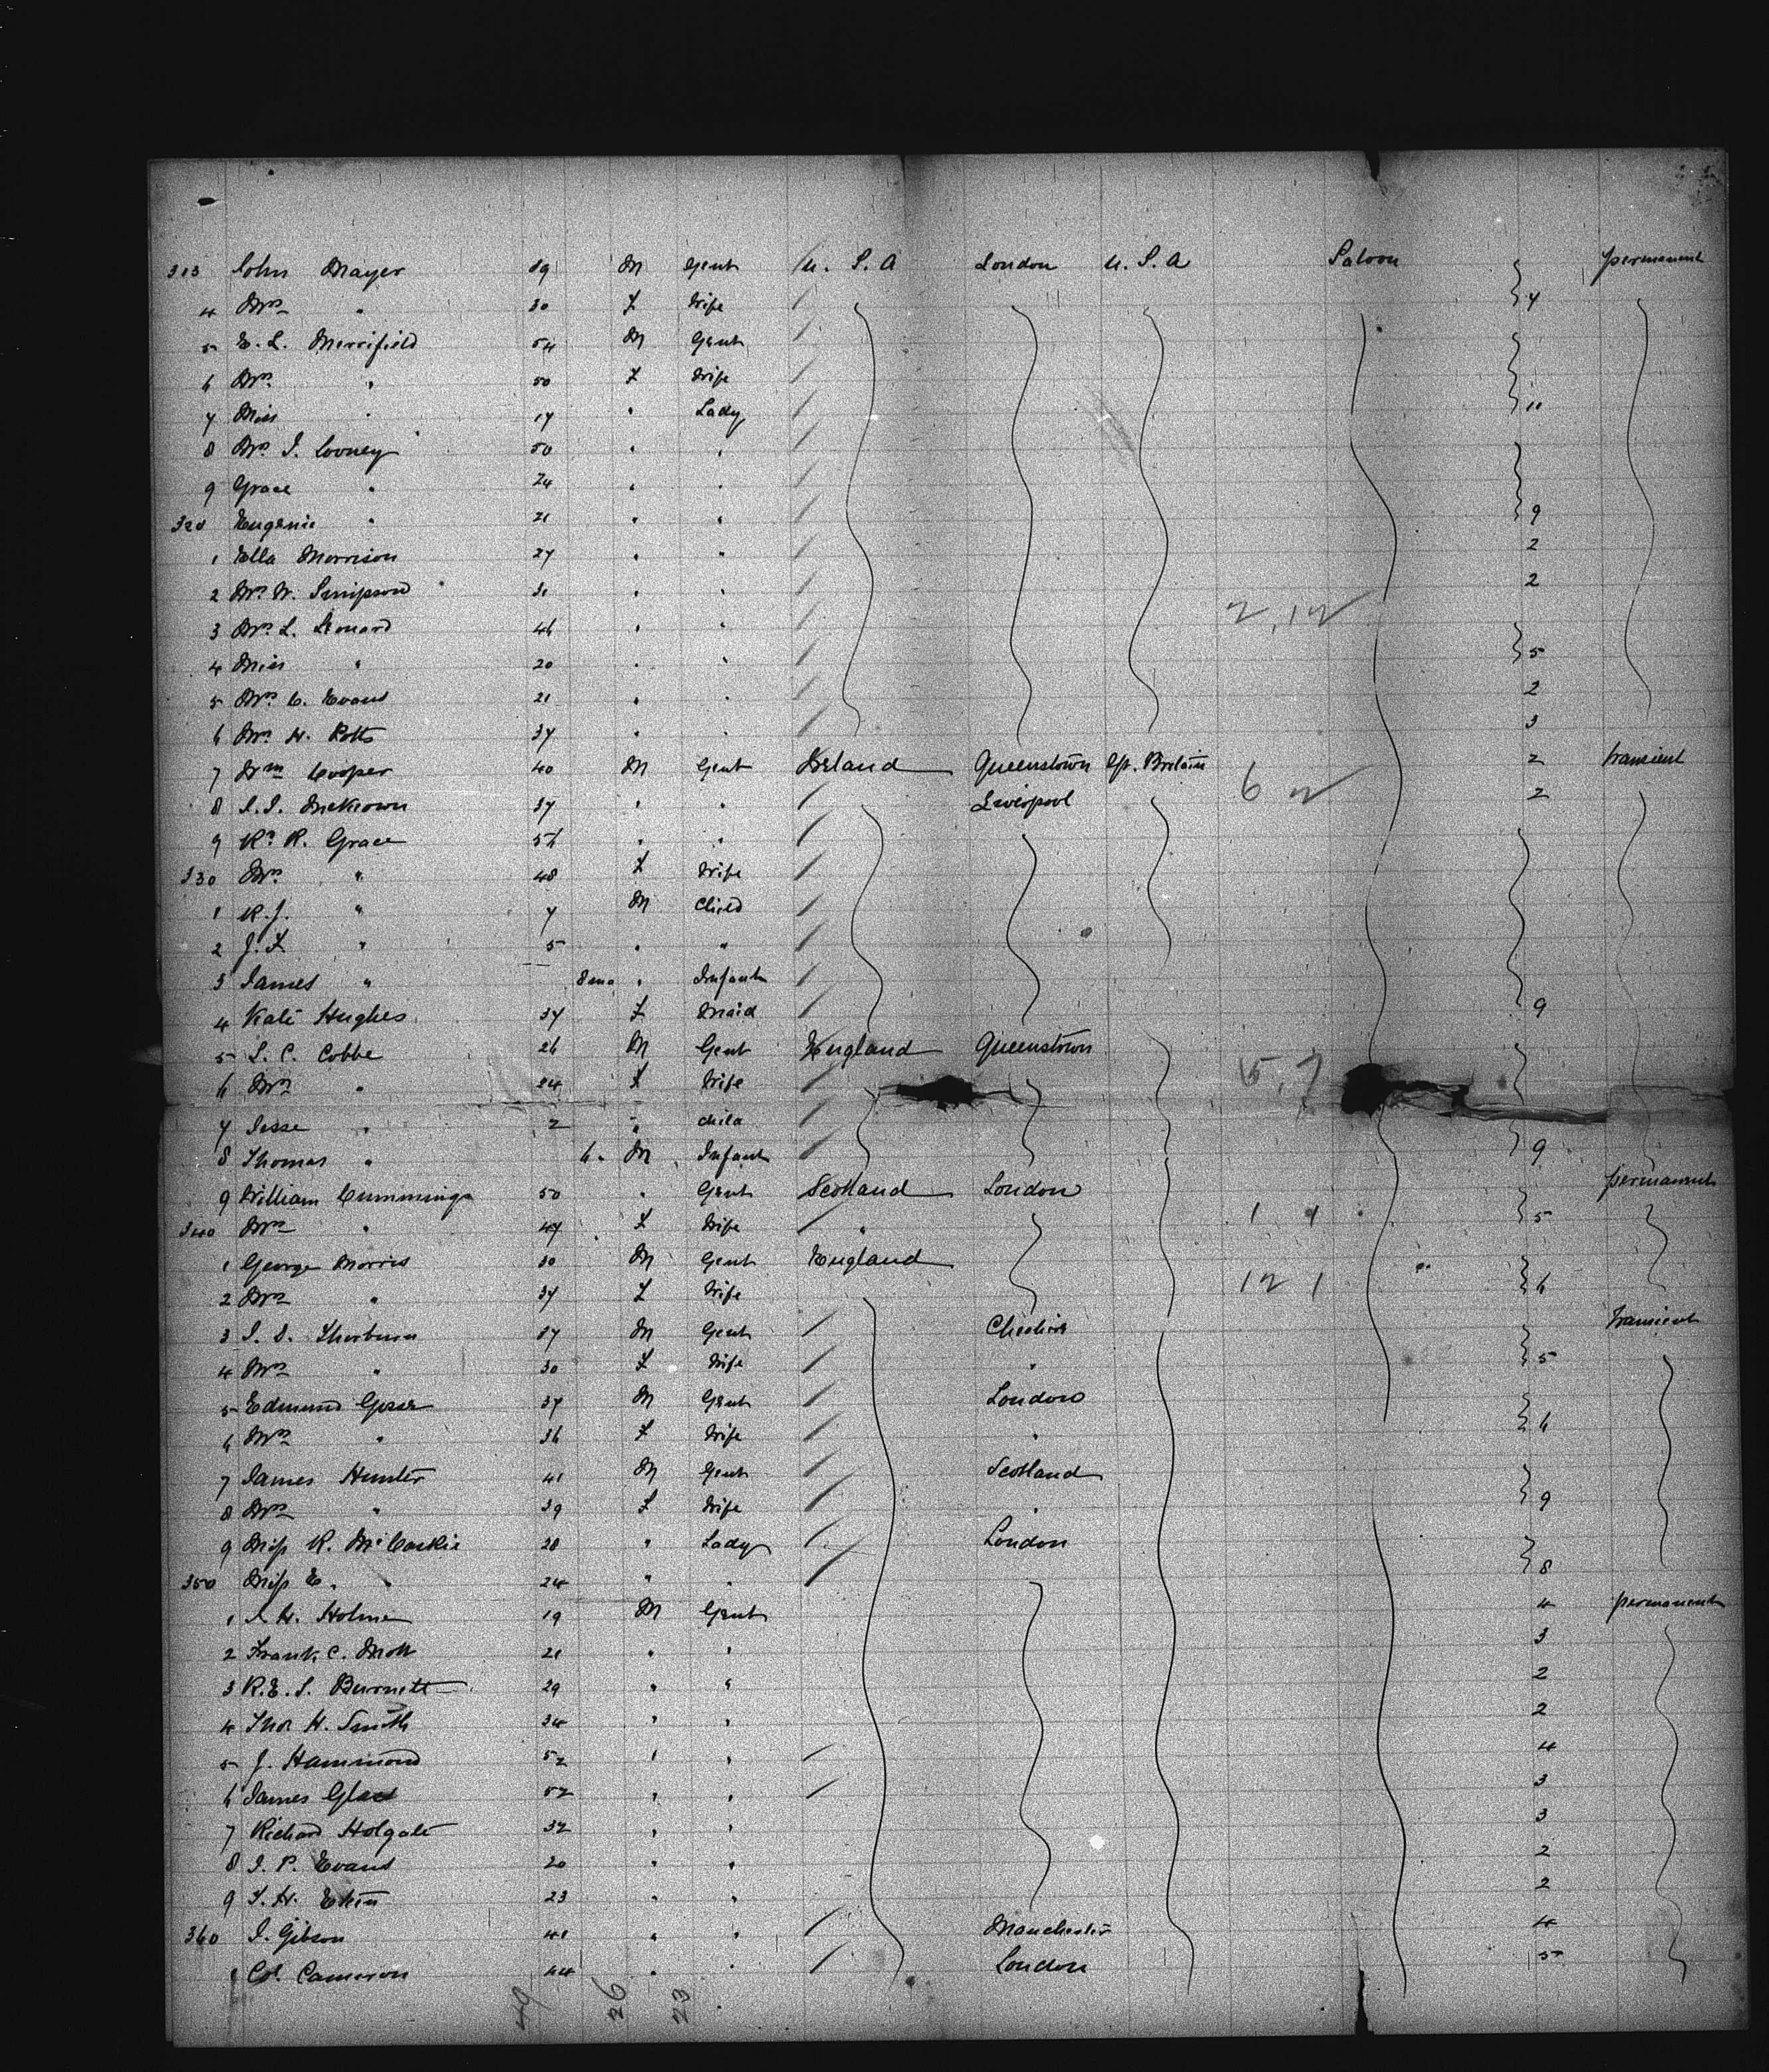 313 John Mayer 39 M Gent U. S. A London U. S. A Saloon permanent
4 Mrs " 30 F Wife 7
5 E. L. Merrifield 54 M Gent
6 Mrs " 50 F Wife
7 Miss " 17 " Lady 11
8 Mrs J. Cooney 50 " "
9 Grace " 24 " "
320 Eugenie " 21 " " 9
1 Ella Morrison 27 " " 2
2 Mrs W. Simpson 31 " " 2
3 Mrs L. Leonard 46 " " 2,12
4 Miss " 20 " " 5
5 Mrs C. Evans 21 " " 2
6 Mrs H. Potts 37 " " 3
7 Wm Cooper 40 M Gent Ireland Queenstown Gt. Britain 2 transient
8 McKeown 37 " " Liverpool 6 2 2
9 R. Grace 56 " "
330 Mrs " 48 F Wife
1 R. J. " 7 M Child
2 J. F. " 5 " "
3 James " 8 mo " Infant
4 Kate Hughes 37 F Maid 9
5 L. C. Cobbe 26 M Gent England Queenstown
6 Mrs " 24 F Wife 15,7
7 Jesse " 2 " child
8 Thomas " 6 " M Infant 9
9 William Cummings 50 " Gent Scotland London permanent
340 Mrs " 47 F Wife " 1 1 5
1 George Morris 30 M Gent England
2 Mrs " 37 F Wife 12 1 6
3 Thorburn 37 M Gent Cheshire transient
4 Mrs " 30 F Wife " 5
5 Edmund Gosse 37 M Gent London
6 Mrs " 36 F Wife " 6
7 James Hunter 41 M Gent Scotland
8 Mrs " 39 F Wife " 9
9 Miss R. McCorkie 28 " Lady London
350 Miss E. " 24 " " 8
1 H. Holme 19 M Gent 4 permanent
2 Frank C. Mott 21 " " 3
3 R. E. S. Burnett 29 " " 2
4 Thos H. Smith 34 " " 2
5 J. Hammond 52 " " 4
6 James Glass 52 " " 3
7 Richard Holgate 32 " " 3
8 J. P. Evans 20 " " 2
9 H. Ekin 23 " " 2
360 J. Gibson 41 " " Manchester 4
1 Col. Cameron 44 " " London 5
49 26 23